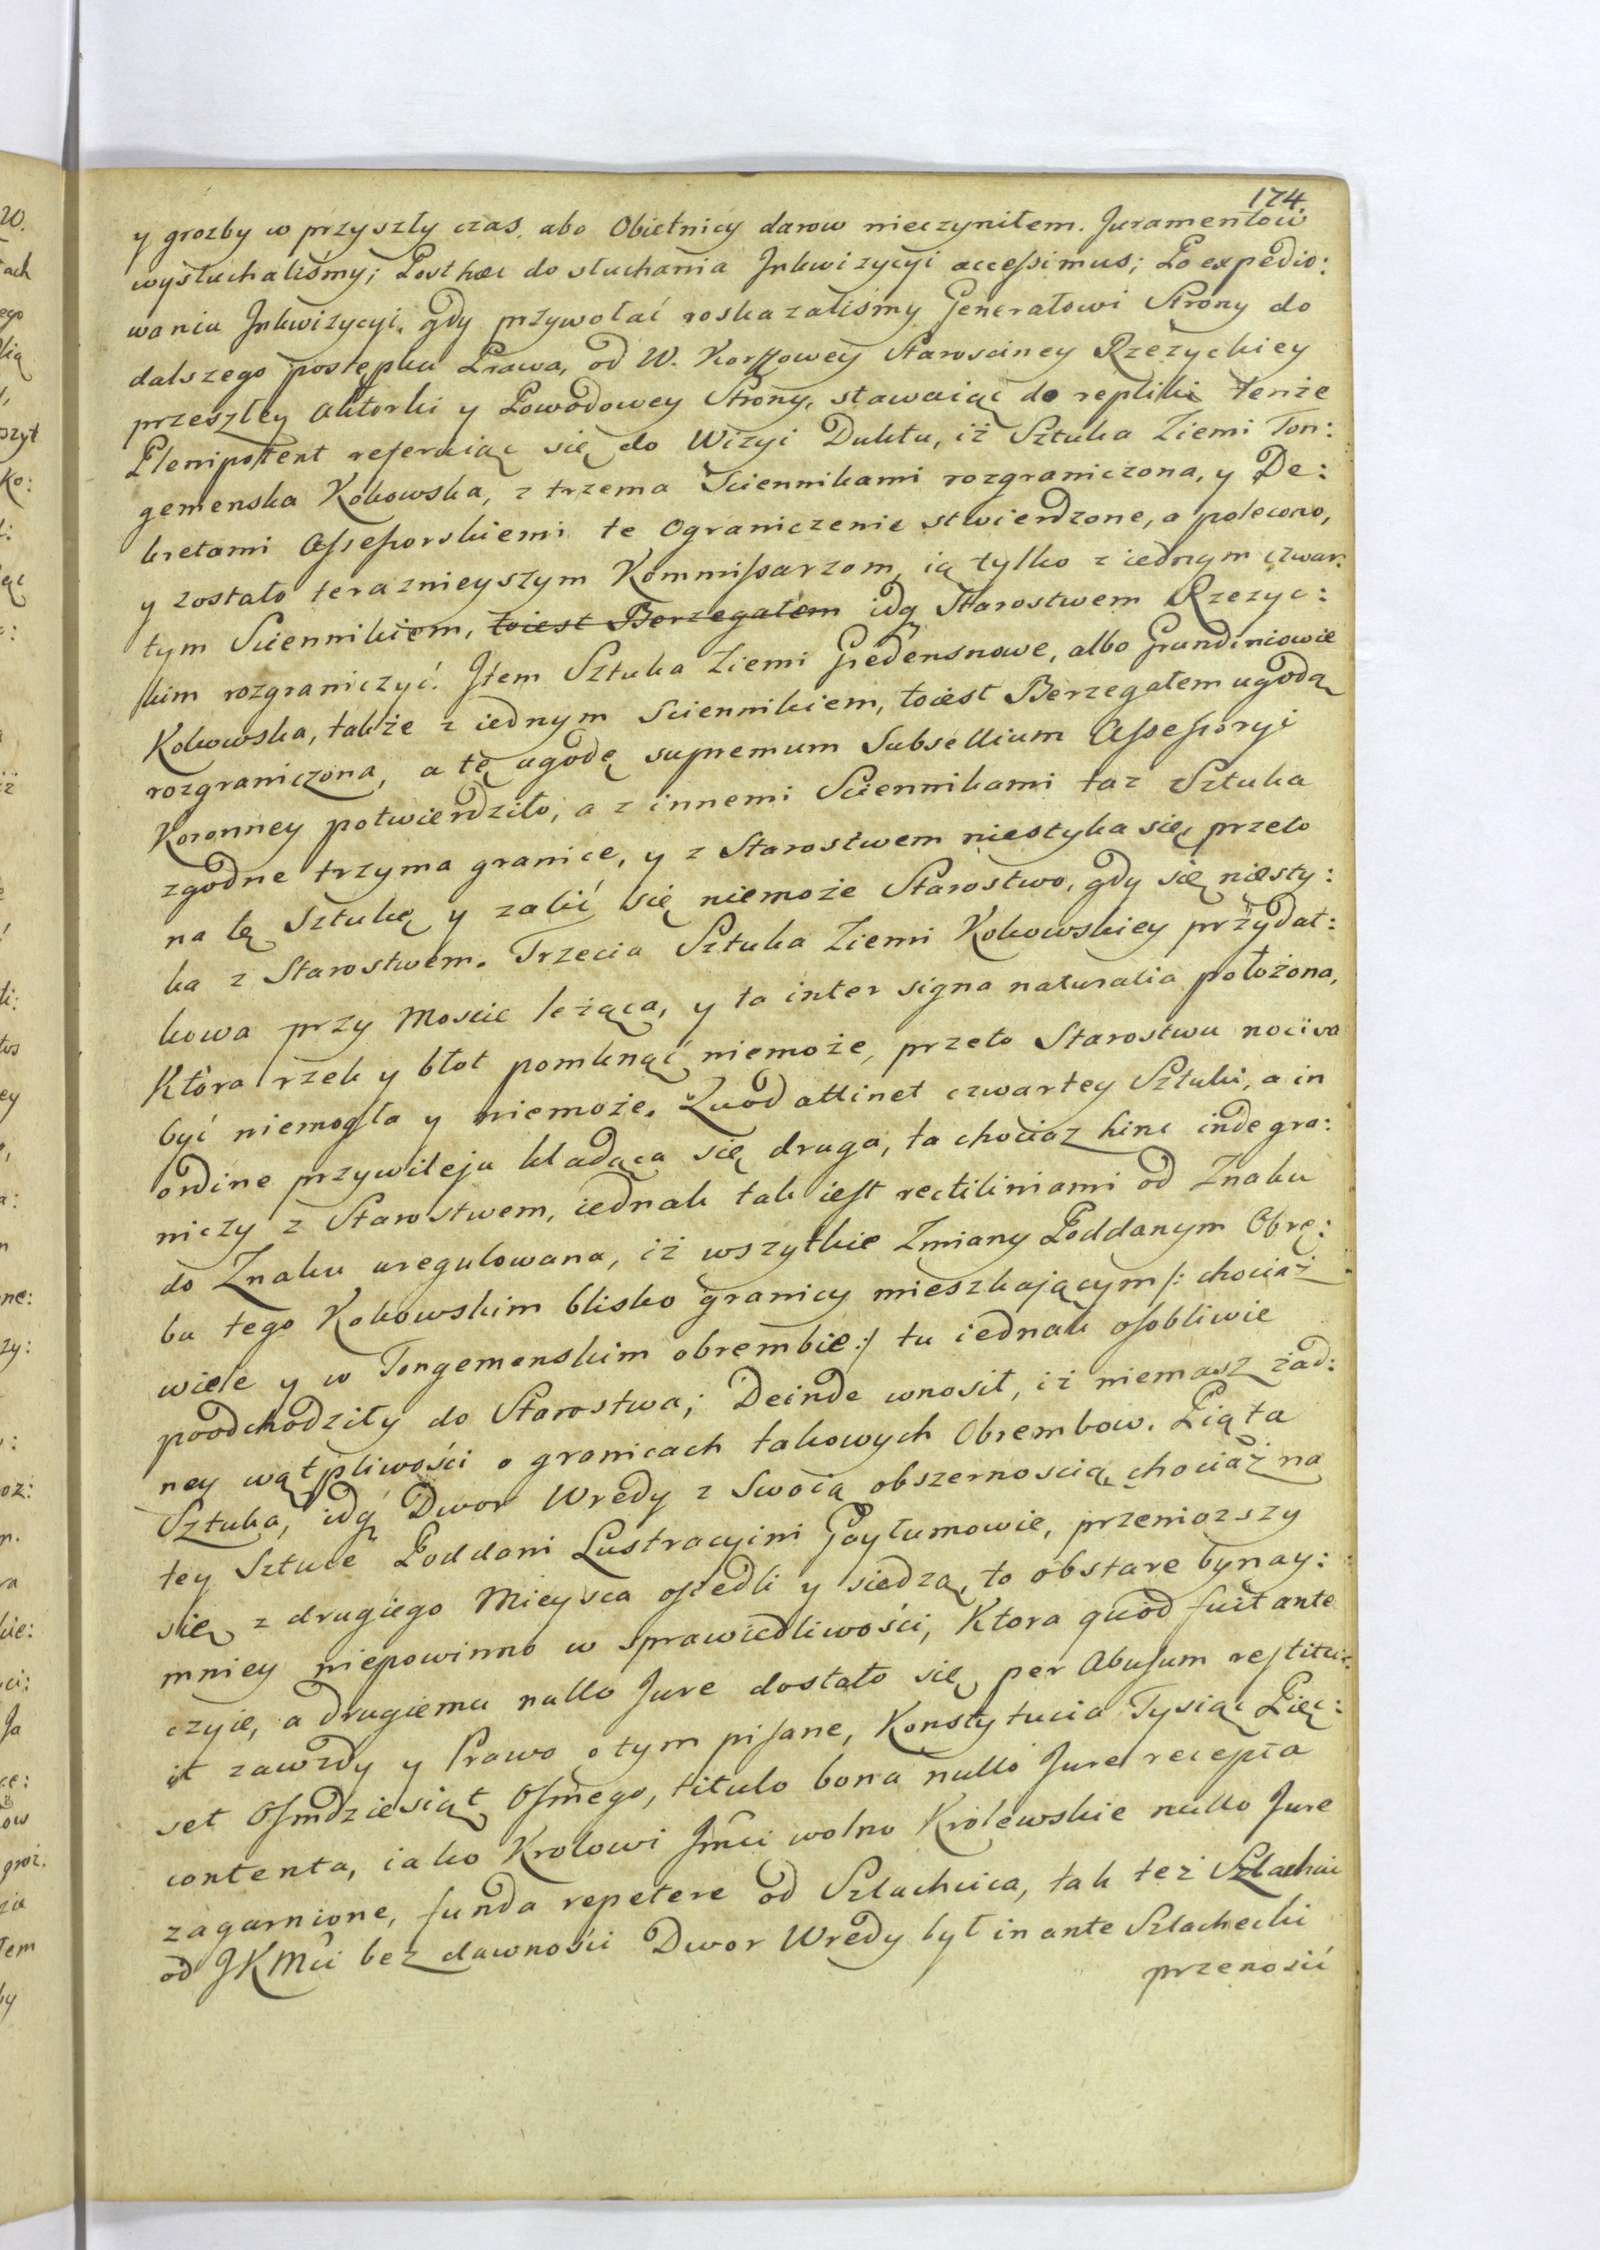 174.
y grozby w przyszły czas abo Obietnicy darow nieczyniłem. Juramentow
wysłuchaliśmy; Posthæc do słuchania Inkwizycyi accessimus; Po expedio:
waniu Inkwizycyi, gdy przywołać roskazaliśmy Generałowi Strony do
dalszego postępku Prawa, od W. Korffowey Starosciney Rzezyckiey
przeszłey Aktorki y Powodowey Strony, stawaiąc do repliki tenże
Plenipotent referuiąc się do Wizyi Duktu, iż Sztuka Ziemi Ton:
gemenska Kokowska, z trzema Sciennikami rozgraniczona, y De:
kretami Assessorskiemi te Ograniczenie stwierdzone, a polecono,
y zostało teraznieyszym Kommissarzom, ią tylko z iednym czwar:
tym Sciennikiem, toiest Berzegałem idq Starostwem Rzezyc:
kim rozgraniczyć. Item Sztuka Ziemi Gredensnowe, albo Grundiniowie
Kokowska, także z iednym Sciennikiem, toiest Berzegałem ugodą
rozgraniczona, a tę ugodę supremum Subsellium Assessoryi
Koronney potwierdziło, a z innemi Sciennikami taz Sztuka
zgodne trzyma granice, y z Starostwem niestyka się, przeto
na tę Sztukę y zalić się niemoże Starostwo, gdy się niesty:
ka z Starostwem. Trzecia Sztuka Ziemi Kokowskiey przydat:
kowa przy Moscie leżąca, y ta inter signa naturalia położona,
Ktora rzek y błot pomknąć niemoże, przeto Starostwu nociva
być niemogła y niemoże. Quod attinet czwartey Sztuki, a in
ordine przywileju kładąca się druga, ta chociaz hinc inde gra:
niczy z Starostwem, iednak tak iest rectiliniami od Znaku
do Znaku uregulowana, iż wszytkie Zmiany Poddanym Obrę:
bu tego Kokowskim blisko granicy mieszkaiącym /: chociaż
wiele y w Tongemenskim obrembie :/ tu iednak osobliwie
poodchodziły do Starostwa; Deinde wnosił, iż niemasz żad:
ney wątpliwości o granicach takowych Obrembow. Piąta
Sztuka, idq Dwor Wredy z Swoią obszernoscią, chociaż na
tey Sztuce Poddani Lustracyini Gayłumowie, przeniozszy
się z drugiego Mieysca osiedli y siedzą, to obstare bynay:
mniey niepowinno w sprawiedliwości, Ktora quod fuit ante
czyie, a drugiemu nullo Jure dostało się per Abusum restitu:
it zawzdy y Prawo o tym pisane, Konstytucia Tysiąc Pięc:
set Osmdziesiąt Osmego, titulo bona nullo Jure recepta
contenta, iako Krolowi Jmći wolno Królewskie nullo Jure
zagarnione, funda repetere od Szlachcica, tak też Szlachcic
od JKMći bez dawności Dwor Wredy był in ante Szlachecki
przenosić